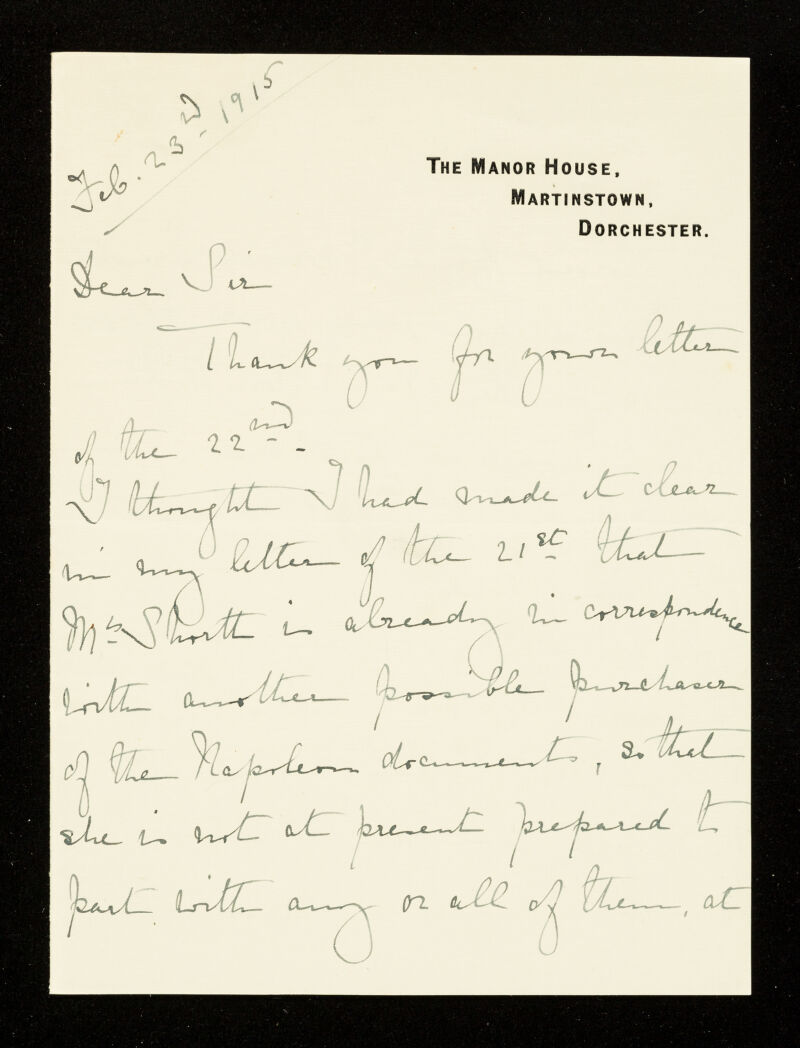 Feb. 23rd 1915
THE MANOR HOUSE,
MARTINSTOWN,
DORCHESTER.
Dear Sir
Thank you for your letter
of the 22nd.
I thought I had made it clear
in my letter of the 21st that
Mrs Shortt is already in correspondence
with another possible purchaser
of the Napoleon documents, so that
she is not at present prepared to
part with any or all of them, at